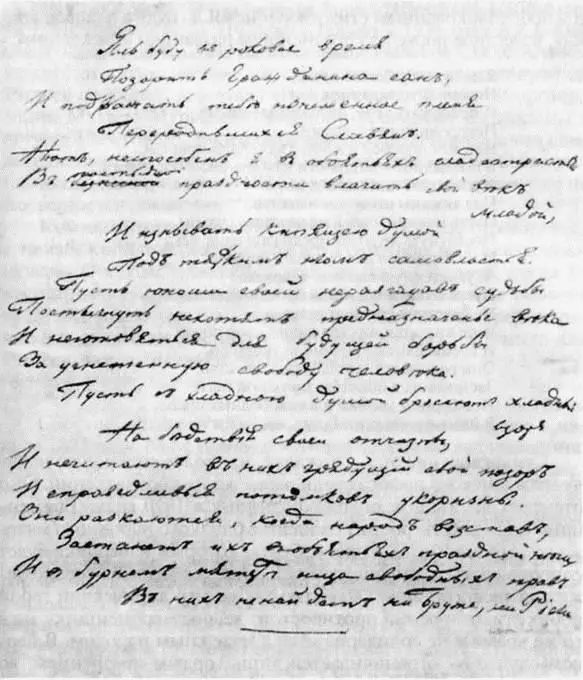 Я ль буду въ роковое время
Позорить Гражданина санъ,
И подражать тебѣ изнеженное племя
Переродившихся Славянъ.
Нѣтъ, неспособенъ я въ объятьяхъ сладострастья
Въ постыдной праздности влачить свой вѣкъ
младой,
И изнывать кипящею думой
Подъ тяжкимъ игомъ самовластья.
Пусть юноши своей неразгадавъ судьбы
Постигнуть нехотятъ предназначенье вѣка
И неготовятся для будущей борьбы
За угнетенную свободу человѣка.
Пусть съ хладною думой бросаютъ хладный
взоръ
На бѣдствія своей отчизны,
И нечитаютъ въ нихъ грядущій свой позоръ
И справедливыя потомковъ укоризны.
Они раскаются, когда народъ возставъ,
Застанетъ ихъ въ объятьяхъ праздной нѣги
И въ бурномъ мятежѣ ища свободныхъ правъ
Въ нихъ ненайдетъ ни Брута, ни Ріеги